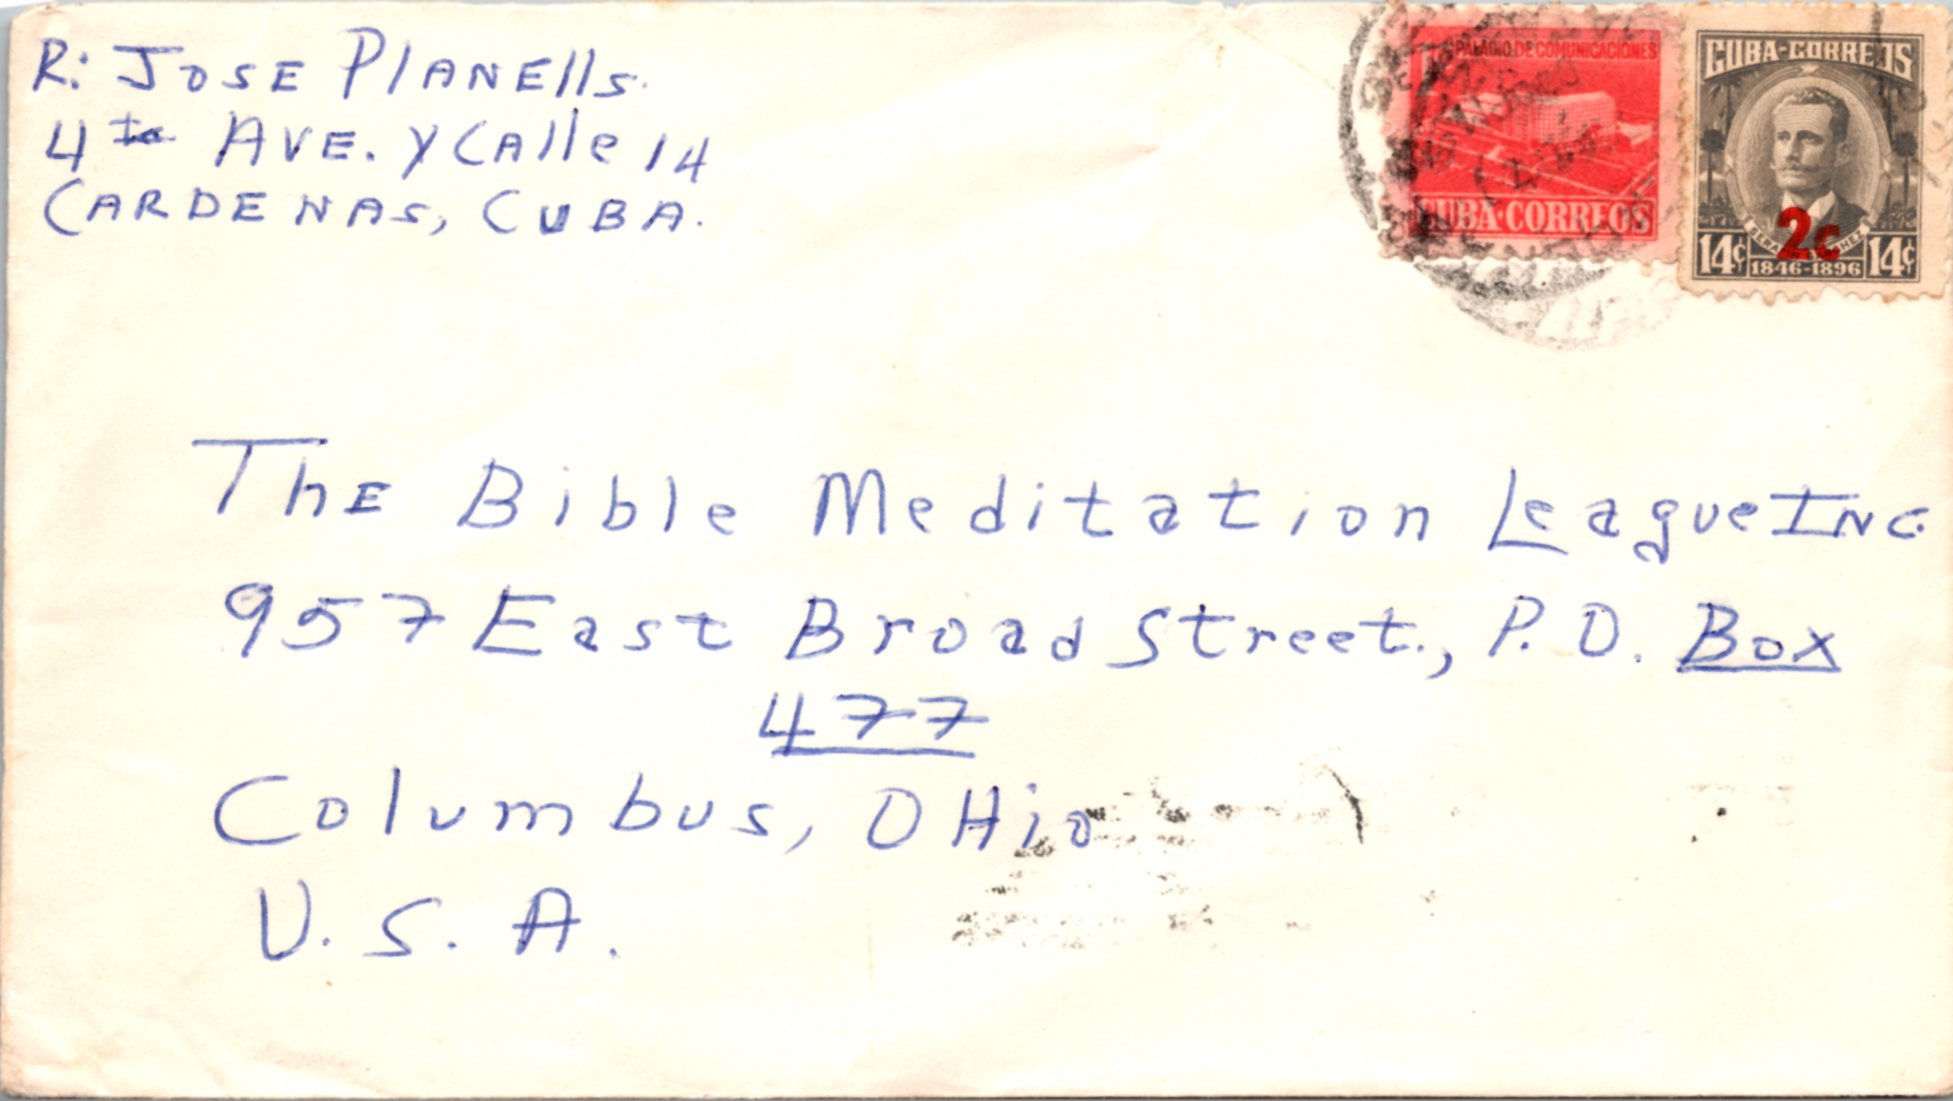 R: JOSE PlANElls.
4ta AVE. y CAlle 14
CARDENAS, CUBA.
PALACIO DE COMUNICACIONES
CUBA·CORREOS
CUBA-CORREOS
2¢
14¢ 1846-1896 14¢
ThE Bible Meditation League INC
957 East Broad Street., P.O. Box
477
Columbus, OHio
U.S.A.